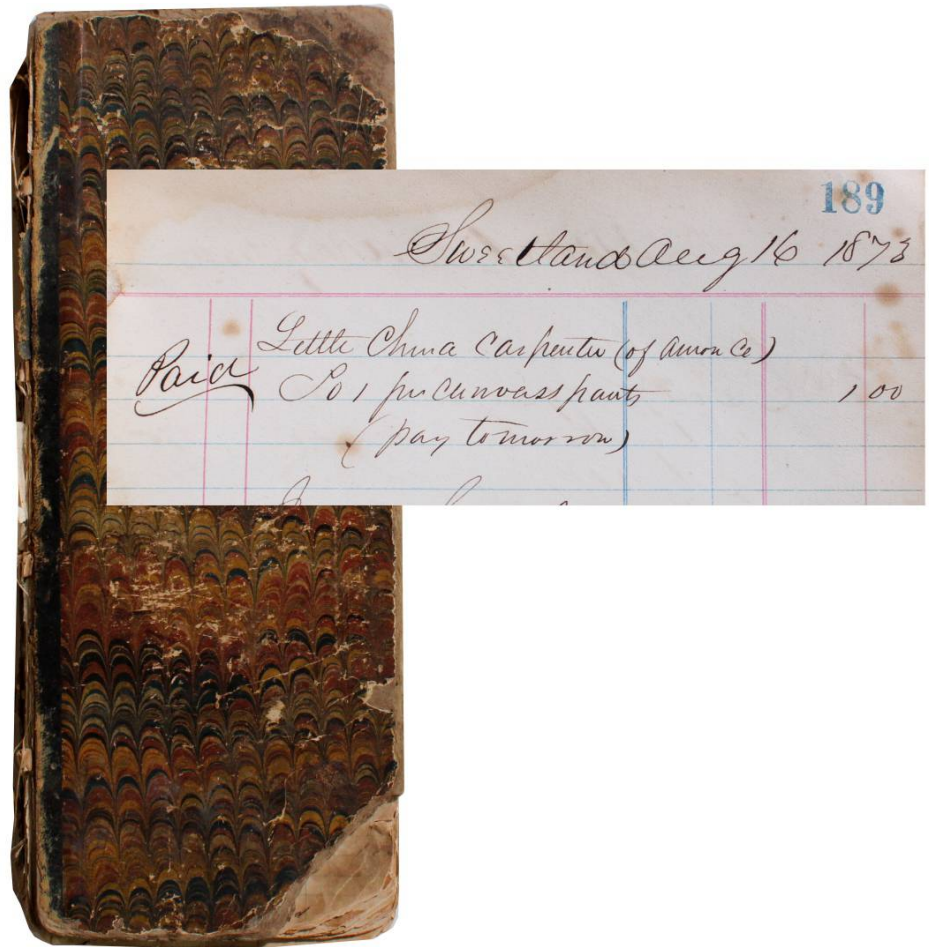 189
Sweetland Aug 16 1873
Little China Carpenter (of amon Co)
Paid To 1 pr Canvass pants 1 00
(pay tomorrow)